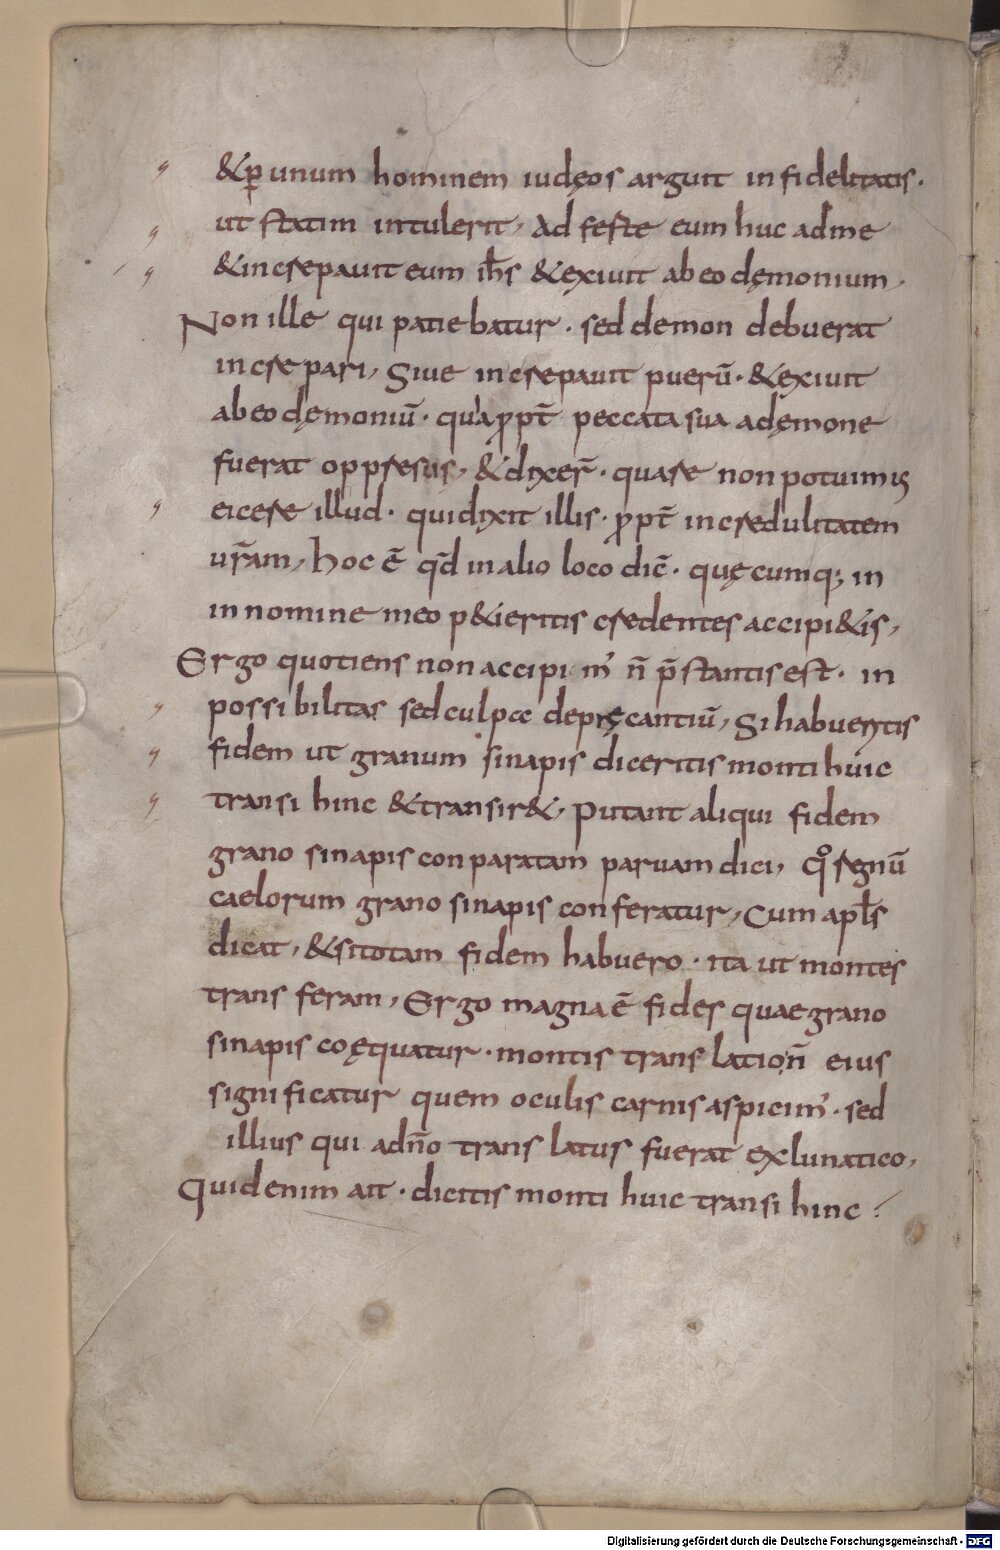 &ꝑ unum hominem iudęos arguit infidelitatis.
ut statim intulerit, Adferte eum huc adme
&increpauit eum ih̅s &exiuit abeo dęmonium,
Non ille qui patiebatur. sed demon debuerat
increpari, Siue increpauit puerū. &exiuit
abeo dęmoniū. quia ꝓpt̅ peccata sua adęmone
fuerat oppressus, &dixer̅. quare non potuimus
eicere illud. qui dixit illis. ꝓpt̅ incredulitatem
ur̅am, hoc ē qd̅ in alio loco dic̅. quęcumq; in
in nomine meo p&ieritis credentes accipi&is,
Ergo quotiens non accipim᾽ n̅ p̅stantis est. in
possibilitas sed culpae depręcantiū, Si habueritis
fidem ut granum sinapis diceritis monti huic
transi hinc &transir&, putant aliqui fidem
grano sinapis conparatam paruam dici, qͦ regnū
caelorum grano sinapis conferatur, Cum apl̅s
dicat, &si totam fidem habuero. ita ut montes
transferam, Ergo magna ē fides quae grano
sinapis coęquatur. montis translation̅ eius
significatur quem oculis carnis aspicim᾽. sed
illius qui adn̅o translatus fuerat exlunatico,
Quid enim ait. dicitis monti huic transi hinc.
Digitalisierung gefördert durch die Deutsche Forschungsgemeinschaft - DFG